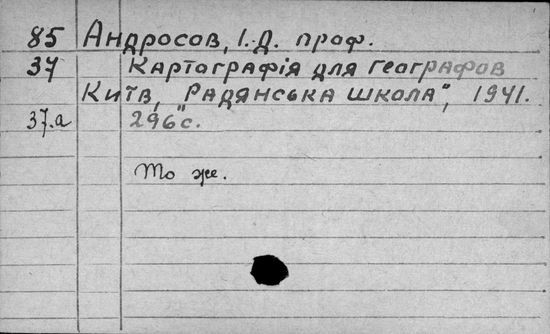 85 Андросов, І.Д. проф.
37 Картографія для географов
Київ, "Радянська школа", 1941.
37.а 296 с.
То же.